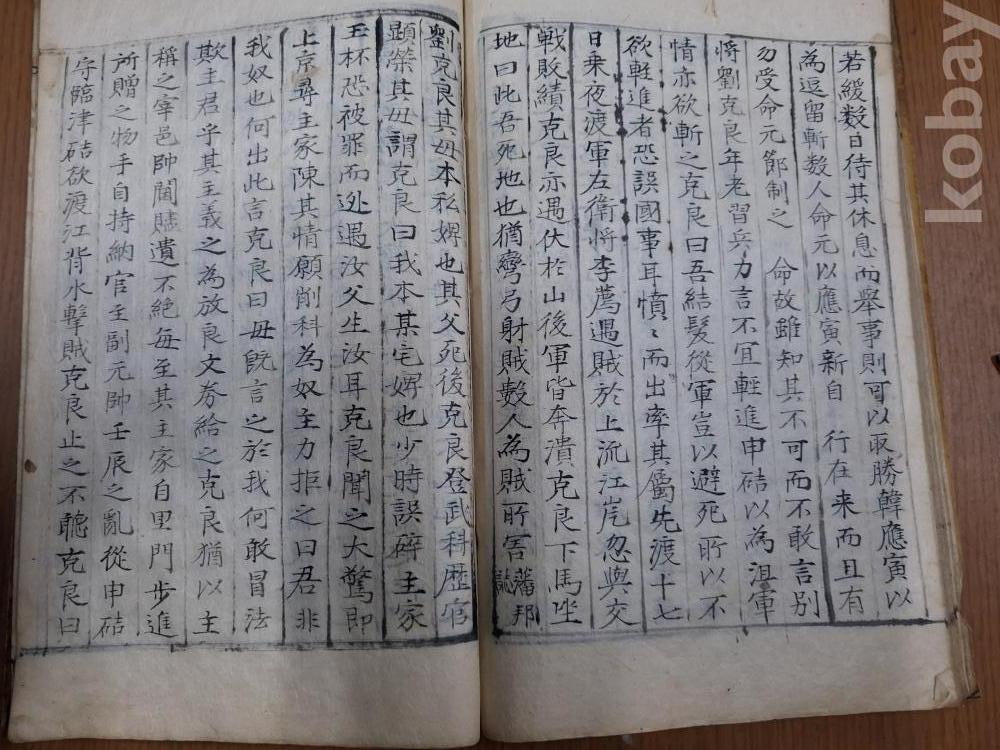 若緩數日待其休息而舉事則可以取勝韓應寅以
為逗留斬數人命元以應寅新自 行在来而且有
勿受命元節制之 命故雖知其不可而不敢言別
将劉克良年老習兵力言不宜輕進申硈以為沮軍
情亦欲斬之克良曰吾結髮從軍豈以避死所以不
欲輕進者恐誤國事耳憤〻而出率其屬先渡十七
日乗夜渡軍左衛将李薦遇賊於上流江岸忽與交
戰敗績克良亦遇伏於山後軍皆奔潰克良下馬坐
地曰此吾死地也猶彎弓射賊數人為賊所害 藩邦誌
劉克良其母本私婢也其父死後克良登武科歷官
顯榮其母謂克良曰我本某宅婢也少時誤碎主家
玉杯恐被罪而迯遇汝父生汝耳克良聞之大驚即
上京尋主家陳其情願削科為奴主力拒之曰君非
我奴也何出此言克良曰母旣言之於我何敢冒法
欺主君乎其主義之為放良文券給之克良猶以主
稱之宰邑帥閫贐遺不絕每至其主家自里門步進
所贈之物手自持納官主副元帥壬辰之亂從申硈
守臨津硈欲渡江背水擊賊克良止之不聽克良曰
kobay